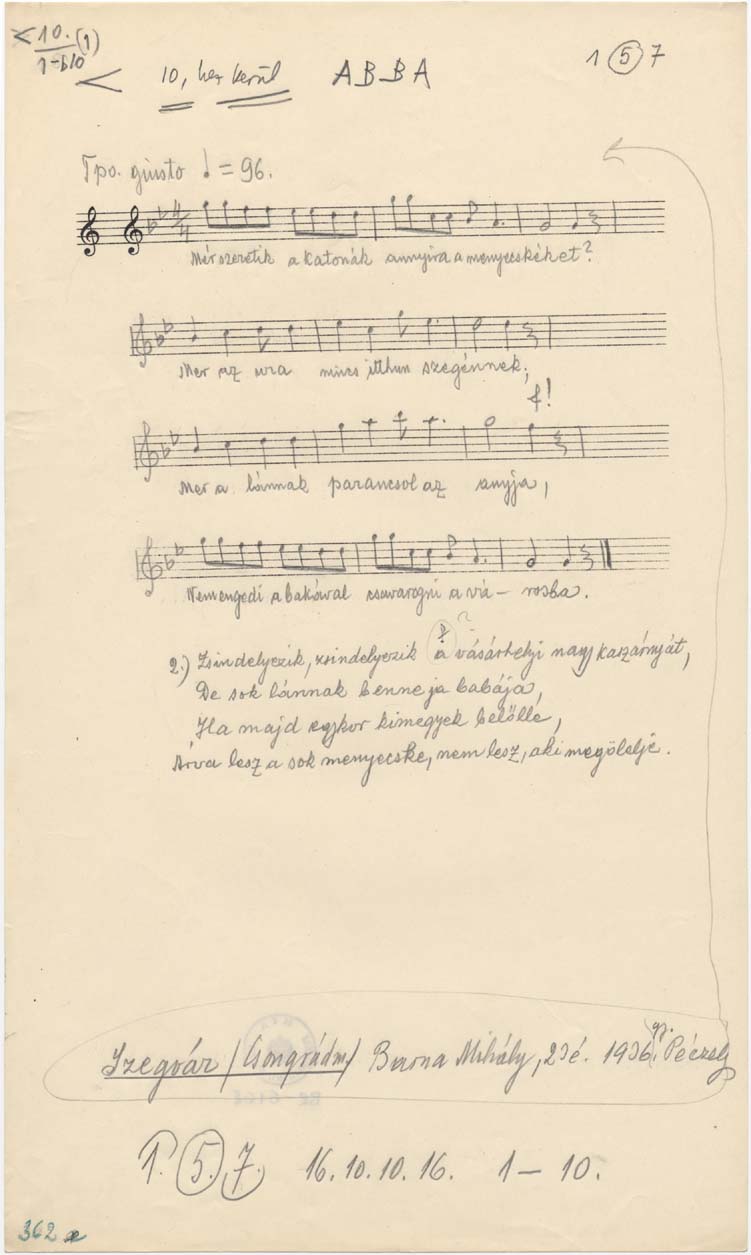 < 10. (1)
1-b10
< 10, hez kerül ABBA
1 5 7
Tpo. giusto ♩ = 96.
4/4
Mér szeretik a katonák annyira a menyecskéket?
Mer az ura nincs itthun szegénnek;
f!
Mer a lánnak parancsol az anyja,
Nem engedi a bakával csavarogni a vá – rosba.
?
2.) Zsindelyezik, zsindelyezik a vásárhelyi nagy kaszárnyát,
De sok lánnak benne ja babája,
Ha majd egykor kimegyek belőlle,
Árva lesz a sok menyecske, nem lesz, aki megölelje.
Szegvár (Csongrádm) Barna Mihály, 23é. 1936. gy. Péczely
1. 5. 7. 16. 10. 10. 16. 1 – 10.
362